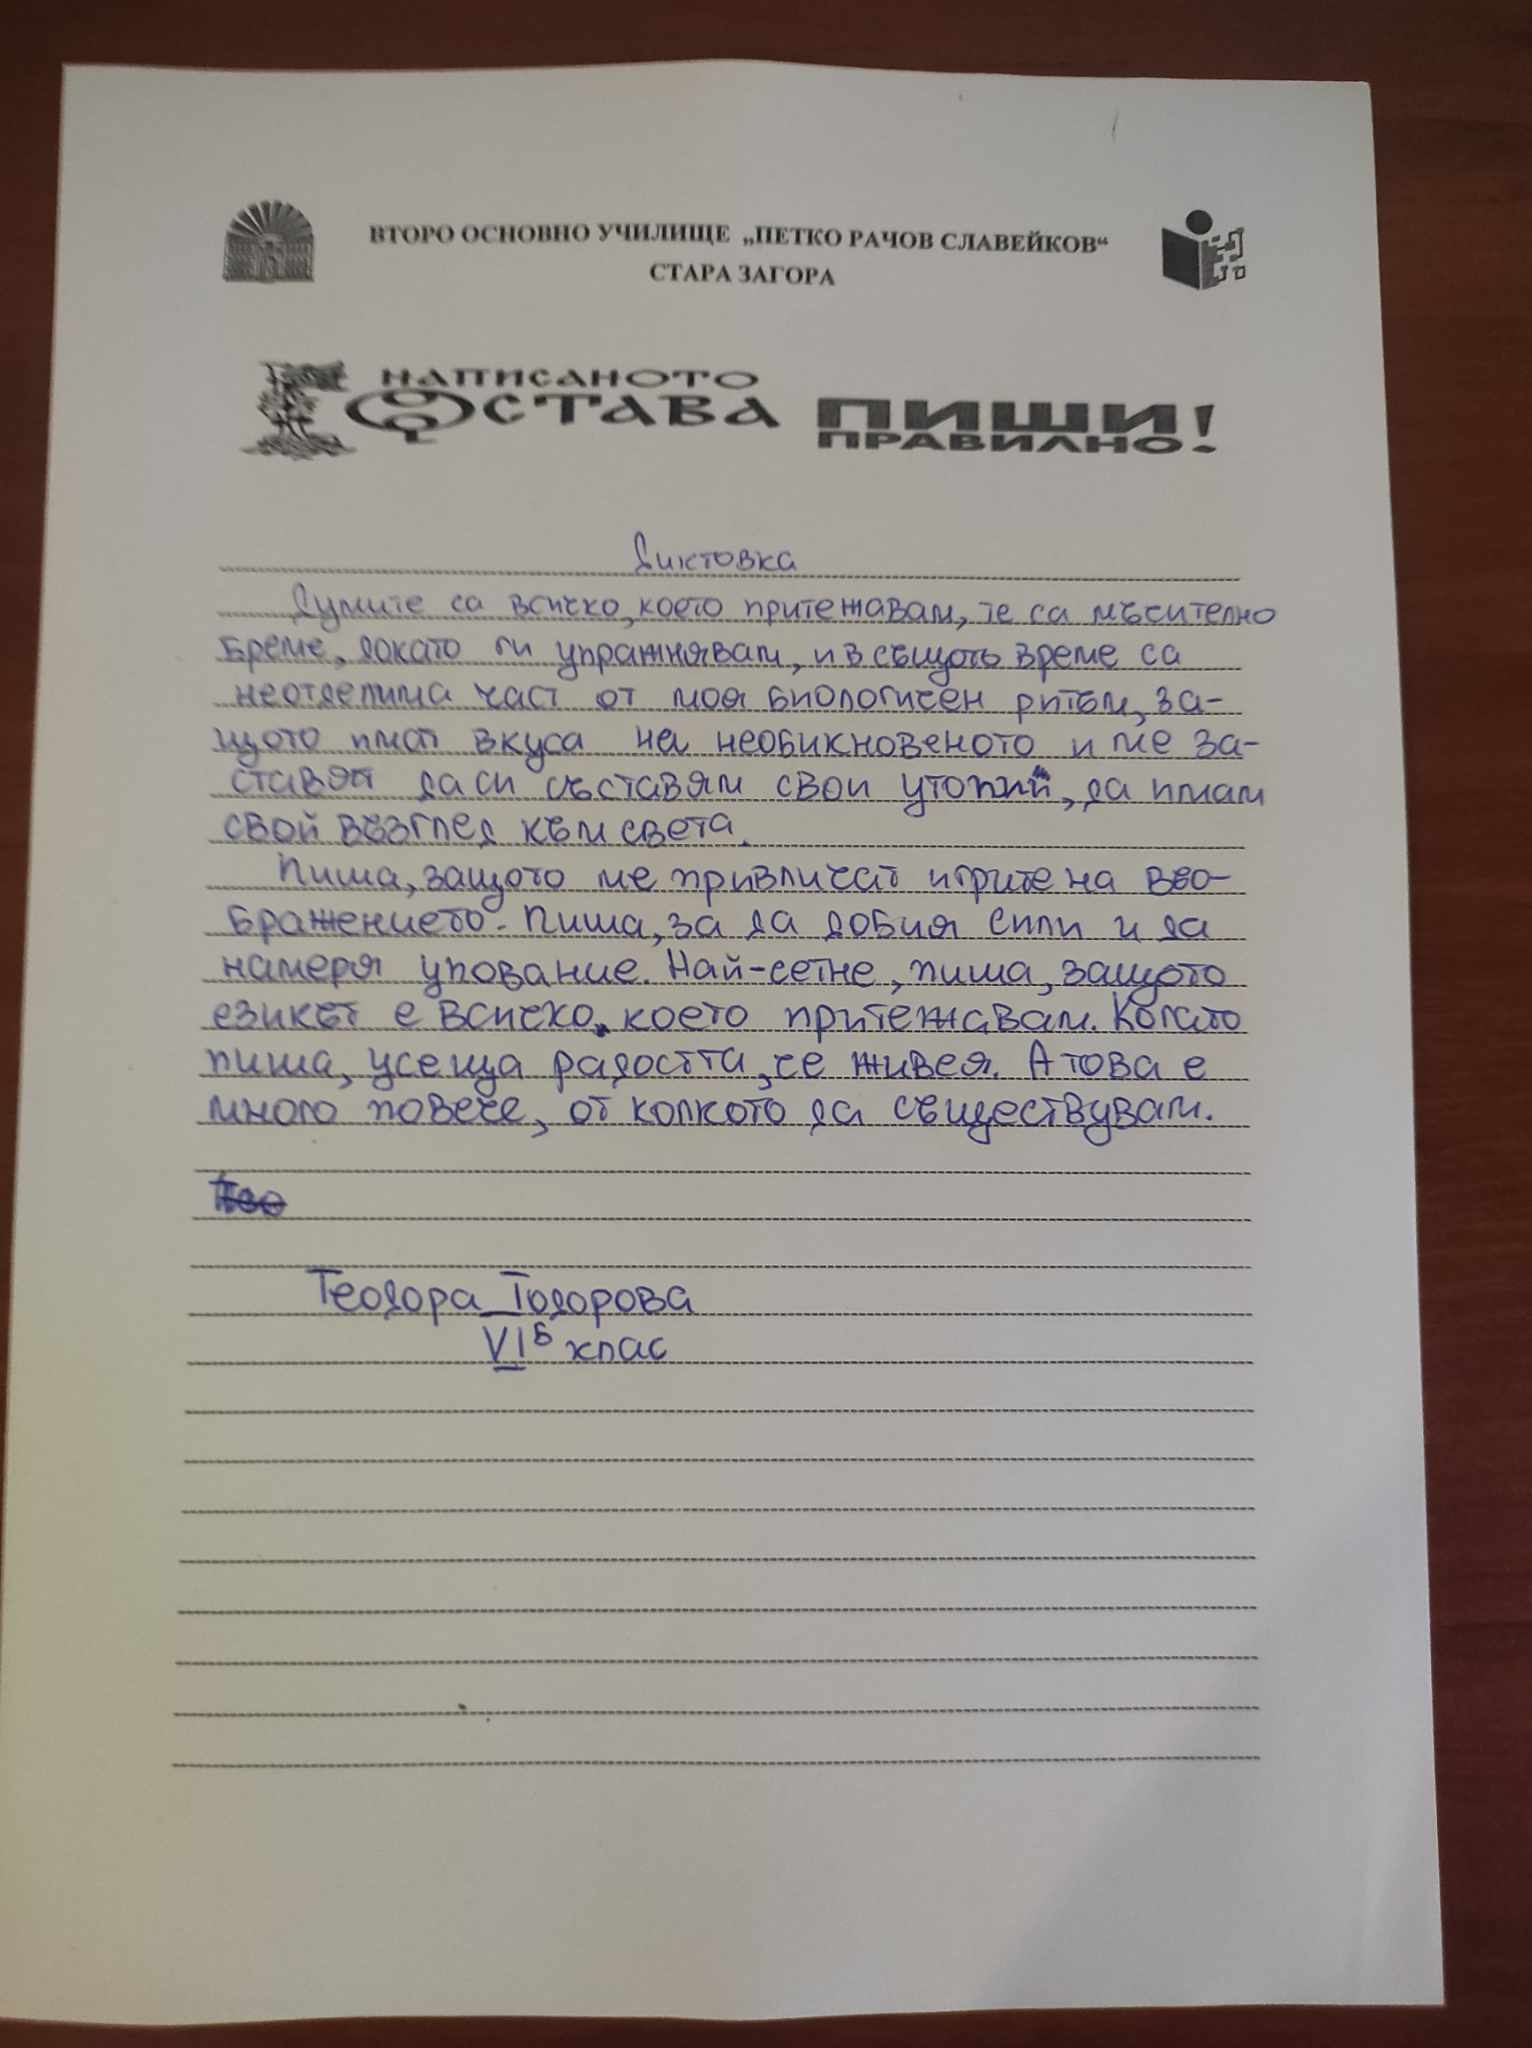 ВТОРО ОСНОВНО УЧИЛИЩЕ „ПЕТКО РАЧОВ СЛАВЕЙКОВ“
СТАРА ЗАГОРА
НАПИСАНОТО
ОСТАВА
ПИШИ
ПРАВИЛНО!
Диктовка
Думите са всичко, което притежавам, те са мъсително
бреме, докато ги упражнявам, и в същото време са
неотделима част от моя биологичен ритъм, за-
щото имат вкуса на необикновеното и ме за-
ставят да си съставям свои утопии, да имам
свой възглед към света.
Пиша, защото ме привличат игрите на въо-
бражението. Пиша, за да добия сили и да
намеря упование. Най-сетне, пиша, защото
езикът е всичко, което притежавам. Когато
пиша, усеща радостта, че живея. А това е
много повече, от колкото да съществувам.
Теодора Тодорова
VIБ клас